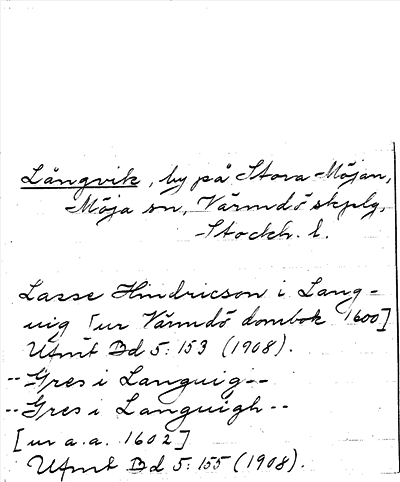 Långvik, by på Stora Möjan,
Möja sn, Värmdö skplg,
Stockh. l.
Lasse Hindricson i Lang-
uig [ur Värmdö dombok 1600]
Ufmt Bd 5:153 (1908).
-- Gres i Languig --
-- Gres i Languigh --
[ur a.a. 1602]
Ufmt Bd 5:155 (1908).